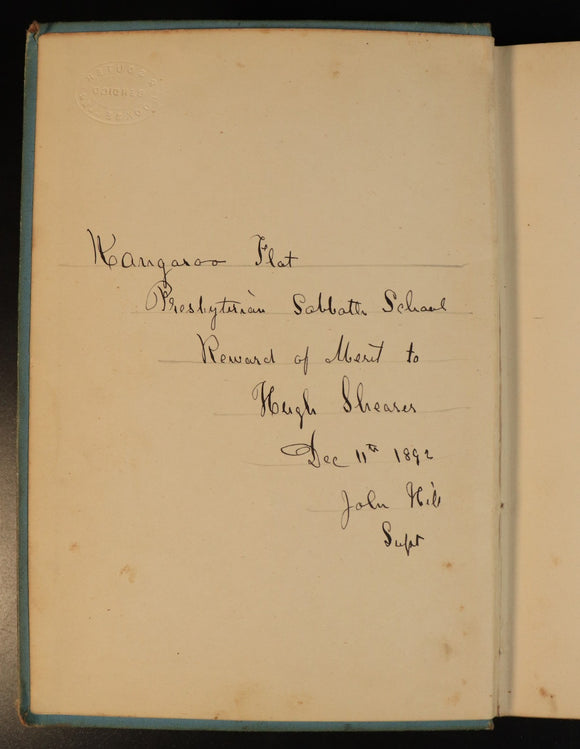 Kangaroo Flat
Presbyterian Sabbath School
Reward of Merit to
Hugh Shearer
Dec 11th 1892
John Hill
Supt